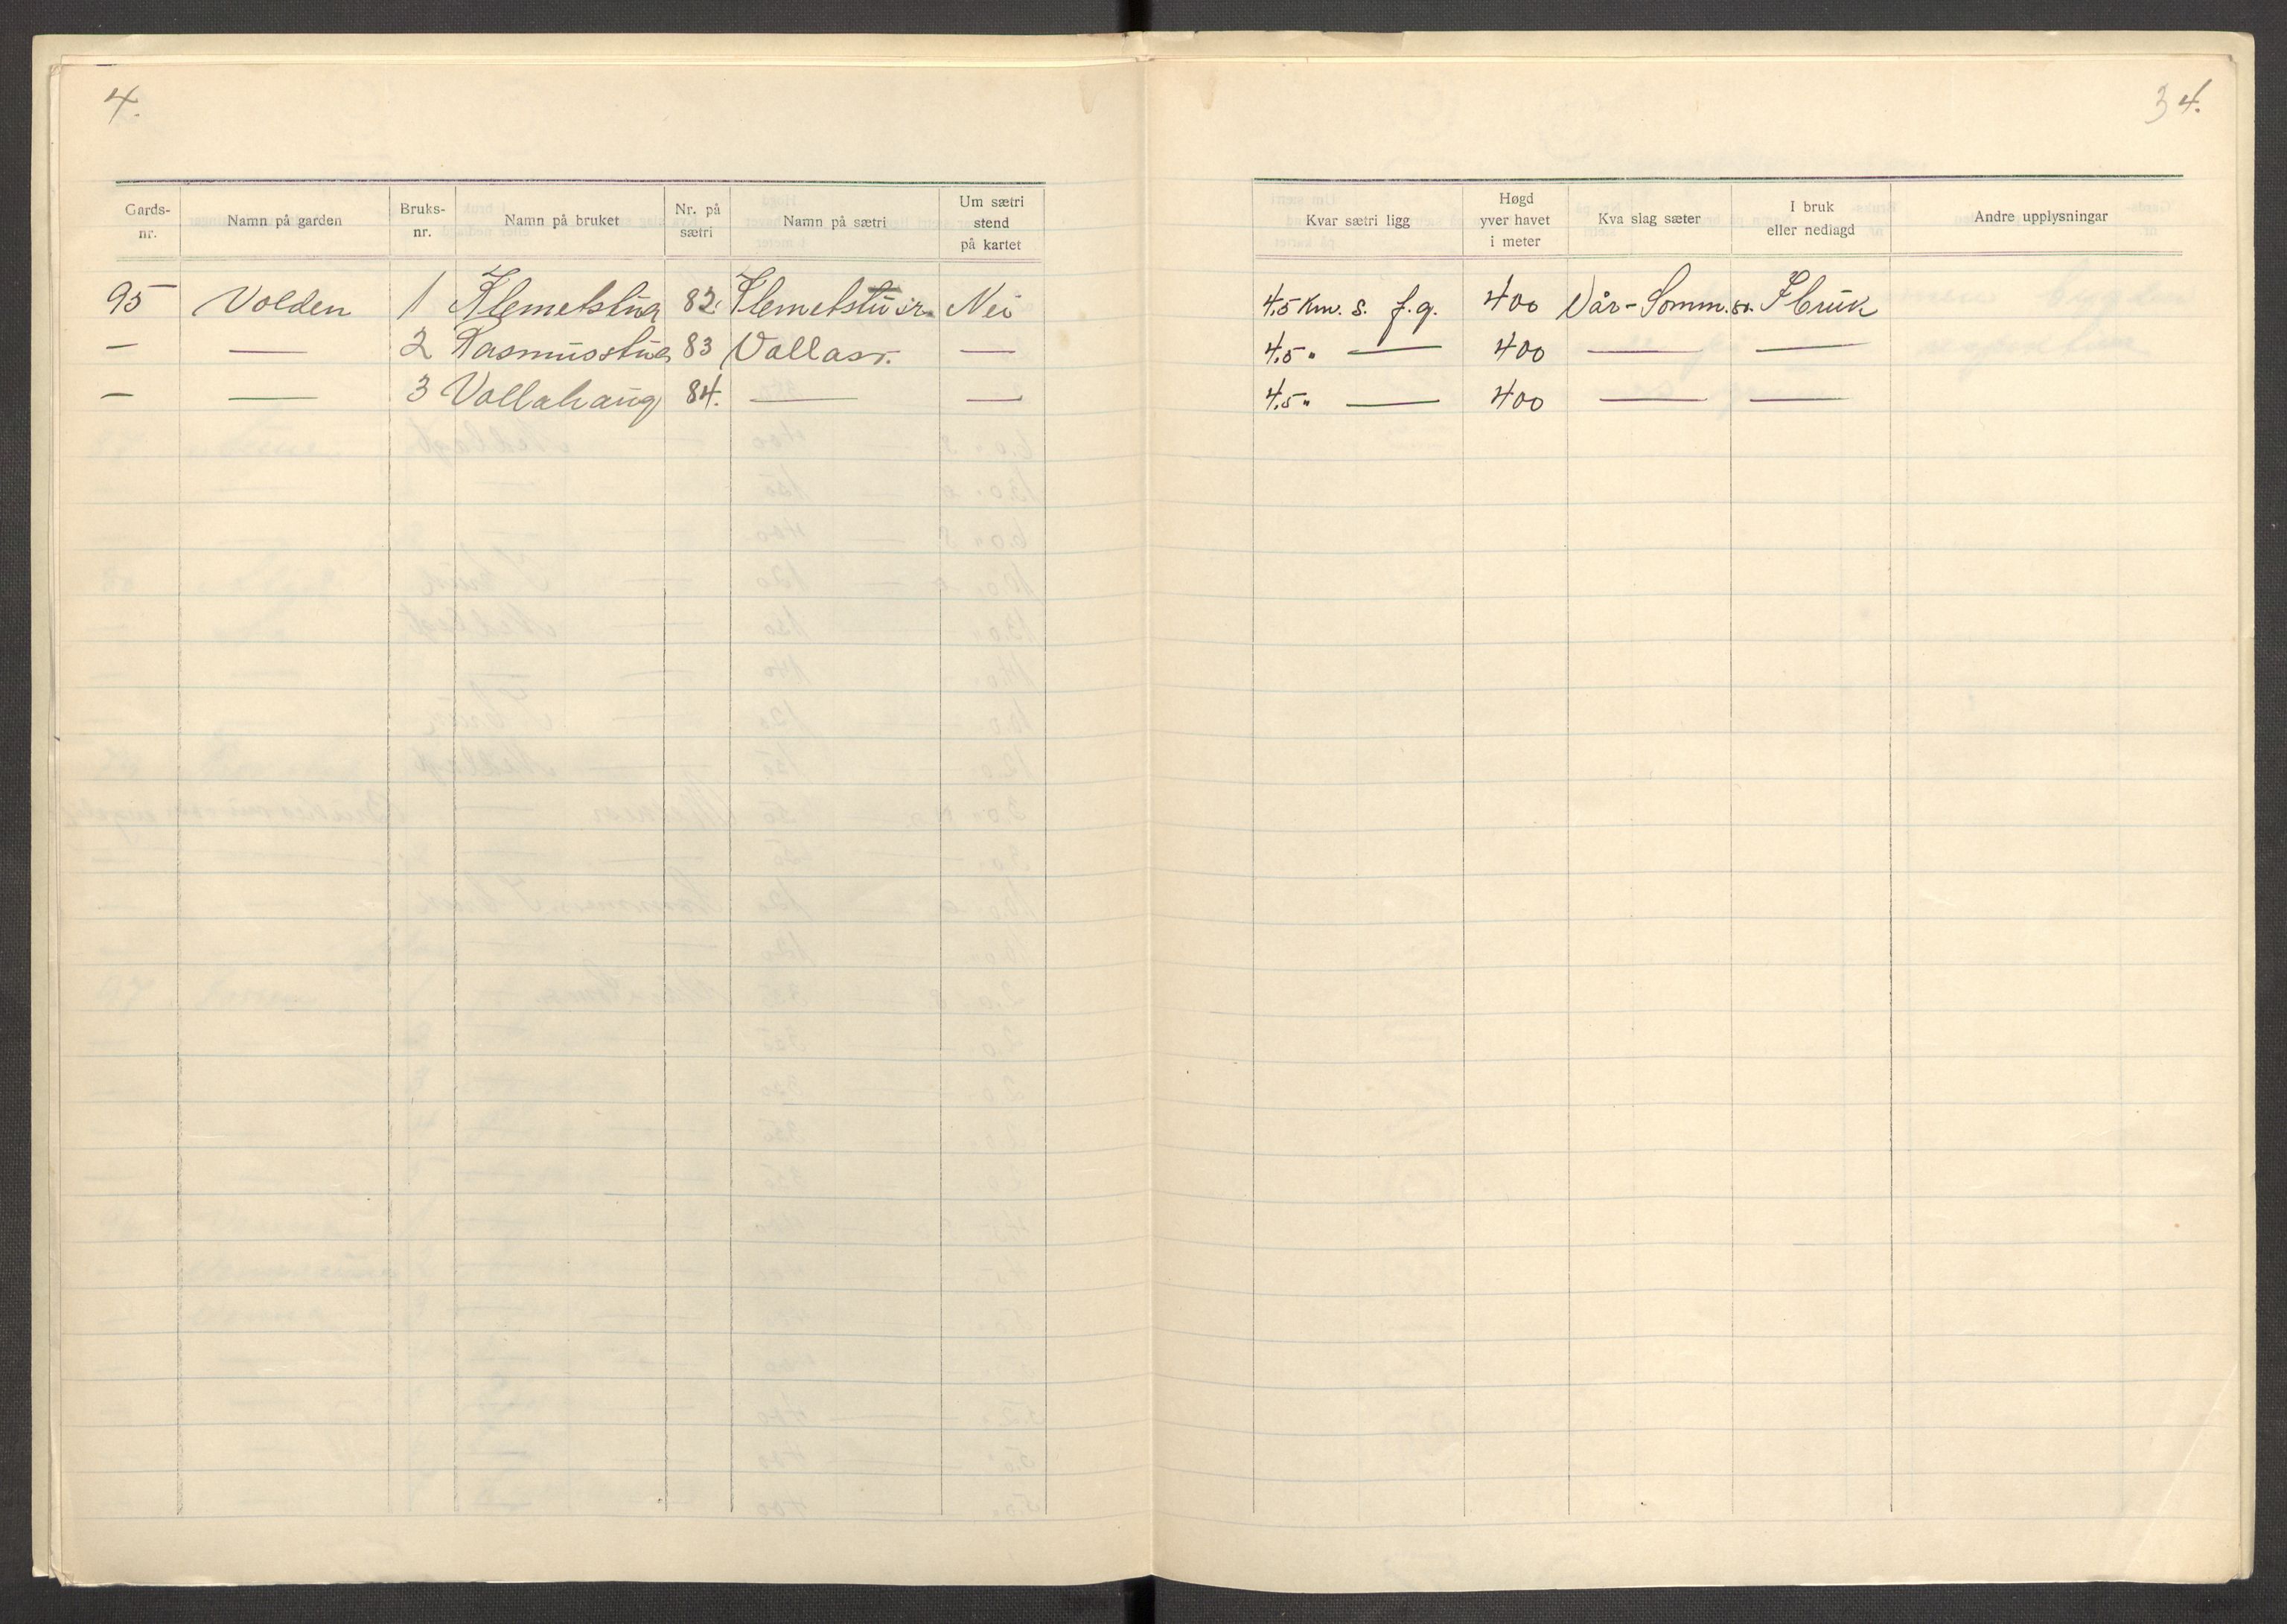 4.
34.
Gards-nr. Namn på garden Bruks-nr. Namn på bruket Nr. på sætri Namn på sætri Um sætri stend på kartet Kvar sætri ligg Høgd yver havet i meter Kva slag sæter I bruk eller nedlagd Andre upplysningar
95 Volden 1 Klemetstua 82. Klemetstusr. Nei 4,5 Km. S. f. g. 400 Vår-Somm.sr. I bruk
— — 2 Rasmusstua 83 Vollasr. — 4,5 " — 400 — —
— — 3 Vollahaug 84. — — 4,5 " — 400 — —